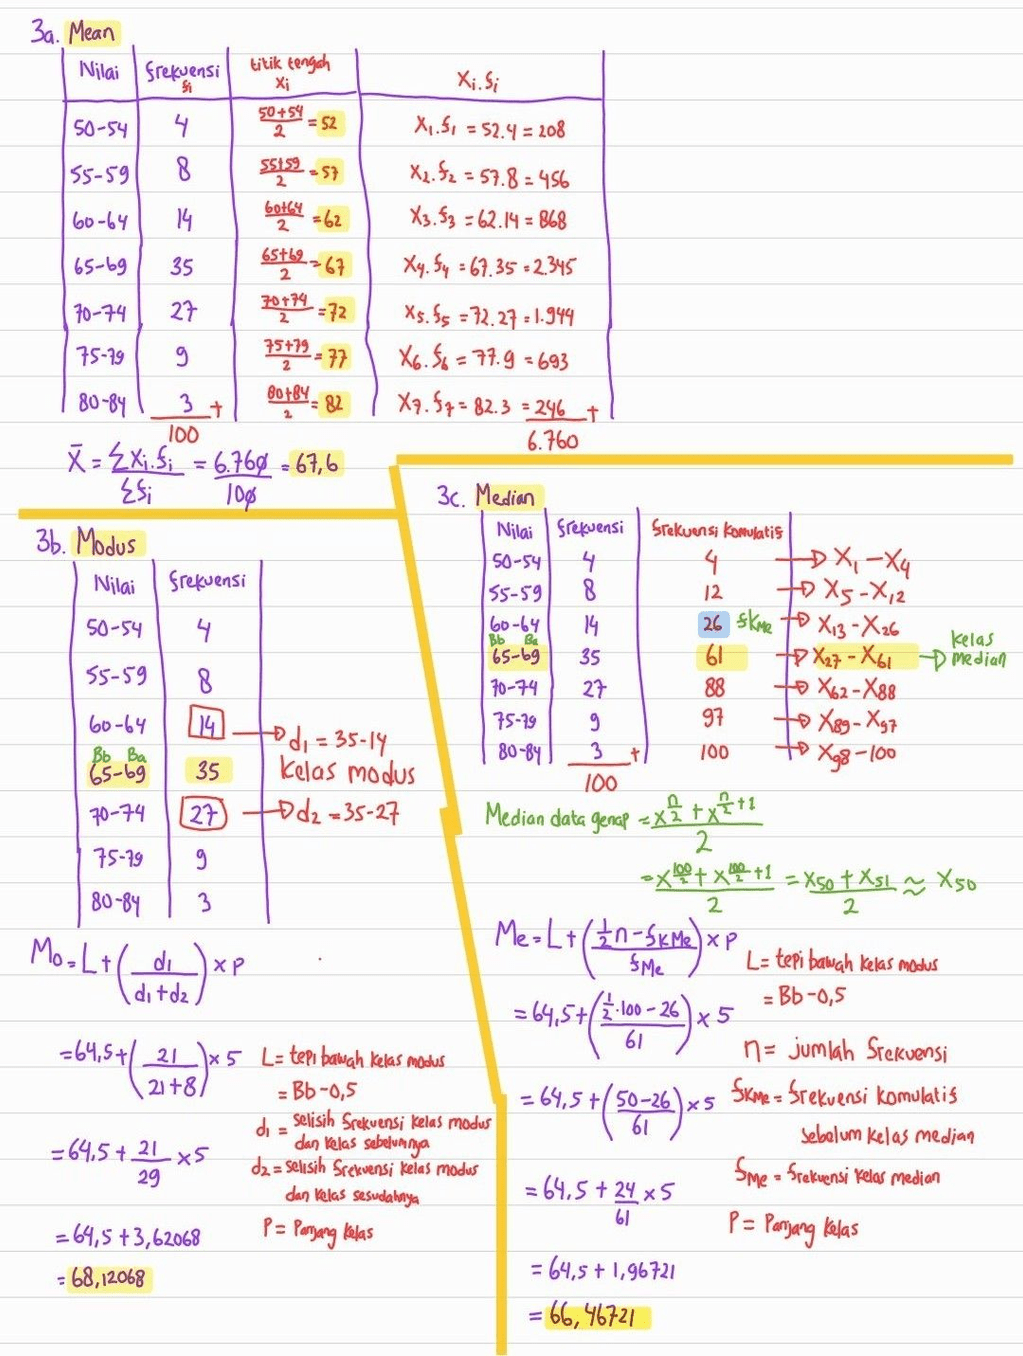 3a. Mean
Nilai frekuensi fi titik tengah xi xi.fi
50-54 4 50+54/2 = 52 x1.f1 = 52.4 = 208
55-59 8 55+59/2 = 57 x2.f2 = 57.8 = 456
60-64 14 60+64/2 = 62 x3.f3 = 62.14 = 868
65-69 35 65+69/2 = 67 x4.f4 = 67.35 = 2.345
70-74 27 70+74/2 = 72 x5.f5 = 72.27 = 1.944
75-79 9 75+79/2 = 77 x6.f6 = 77.9 = 693
80-84 3 + 80+84/2 = 82 x7.f7 = 82.3 = 246 +
100 6.760
x̄ = Σxi.fi/Σfi = 6.760/100 = 67,6
3b. Modus
Nilai frekuensi
50-54 4
55-59 8
60-64 14 → d1 = 35-14
Bb Ba
65-69 35 Kelas modus
70-74 27 → d2 = 35-27
75-79 9
80-84 3
Mo = L + (d1/d1+d2) × p
= 64,5 + (21/21+8) × 5
= 64,5 + 21/29 × 5
= 64,5 + 3,62068
= 68,12068
L = tepi bawah kelas modus
= Bb-0,5
d1 = selisih frekuensi kelas modus
dan kelas sebelumnya
d2 = selisih frekuensi kelas modus
dan kelas sesudahnya
P = Panjang kelas
3c. Median
Nilai frekuensi frekuensi komulatif
50-54 4 4 → x1 - x4
55-59 8 12 → x5 - x12
60-64 14 26 fKMe → x13 - x26
Bb Ba
65-69 35 61 → x27 - x61 → kelas median
70-74 27 88 → x62 - x88
75-79 9 97 → x89 - x97
80-84 3 + 100 → x98 - 100
100
Median data genap = x n/2 + x n/2 +1 / 2
= x 100/2 + x 100/2 +1 / 2 = x50 + x51 / 2 ≈ x50
Me = L + (½n - fKMe / fMe) × p
= 64,5 + (½.100 - 26 / 61) × 5
= 64,5 + (50-26 / 61) × 5
= 64,5 + 24/61 × 5
= 64,5 + 1,96721
= 66,46721
L = tepi bawah kelas modus
= Bb-0,5
n = jumlah frekuensi
fKMe = frekuensi komulatif
sebelum kelas median
fMe = frekuensi kelas median
P = Panjang kelas